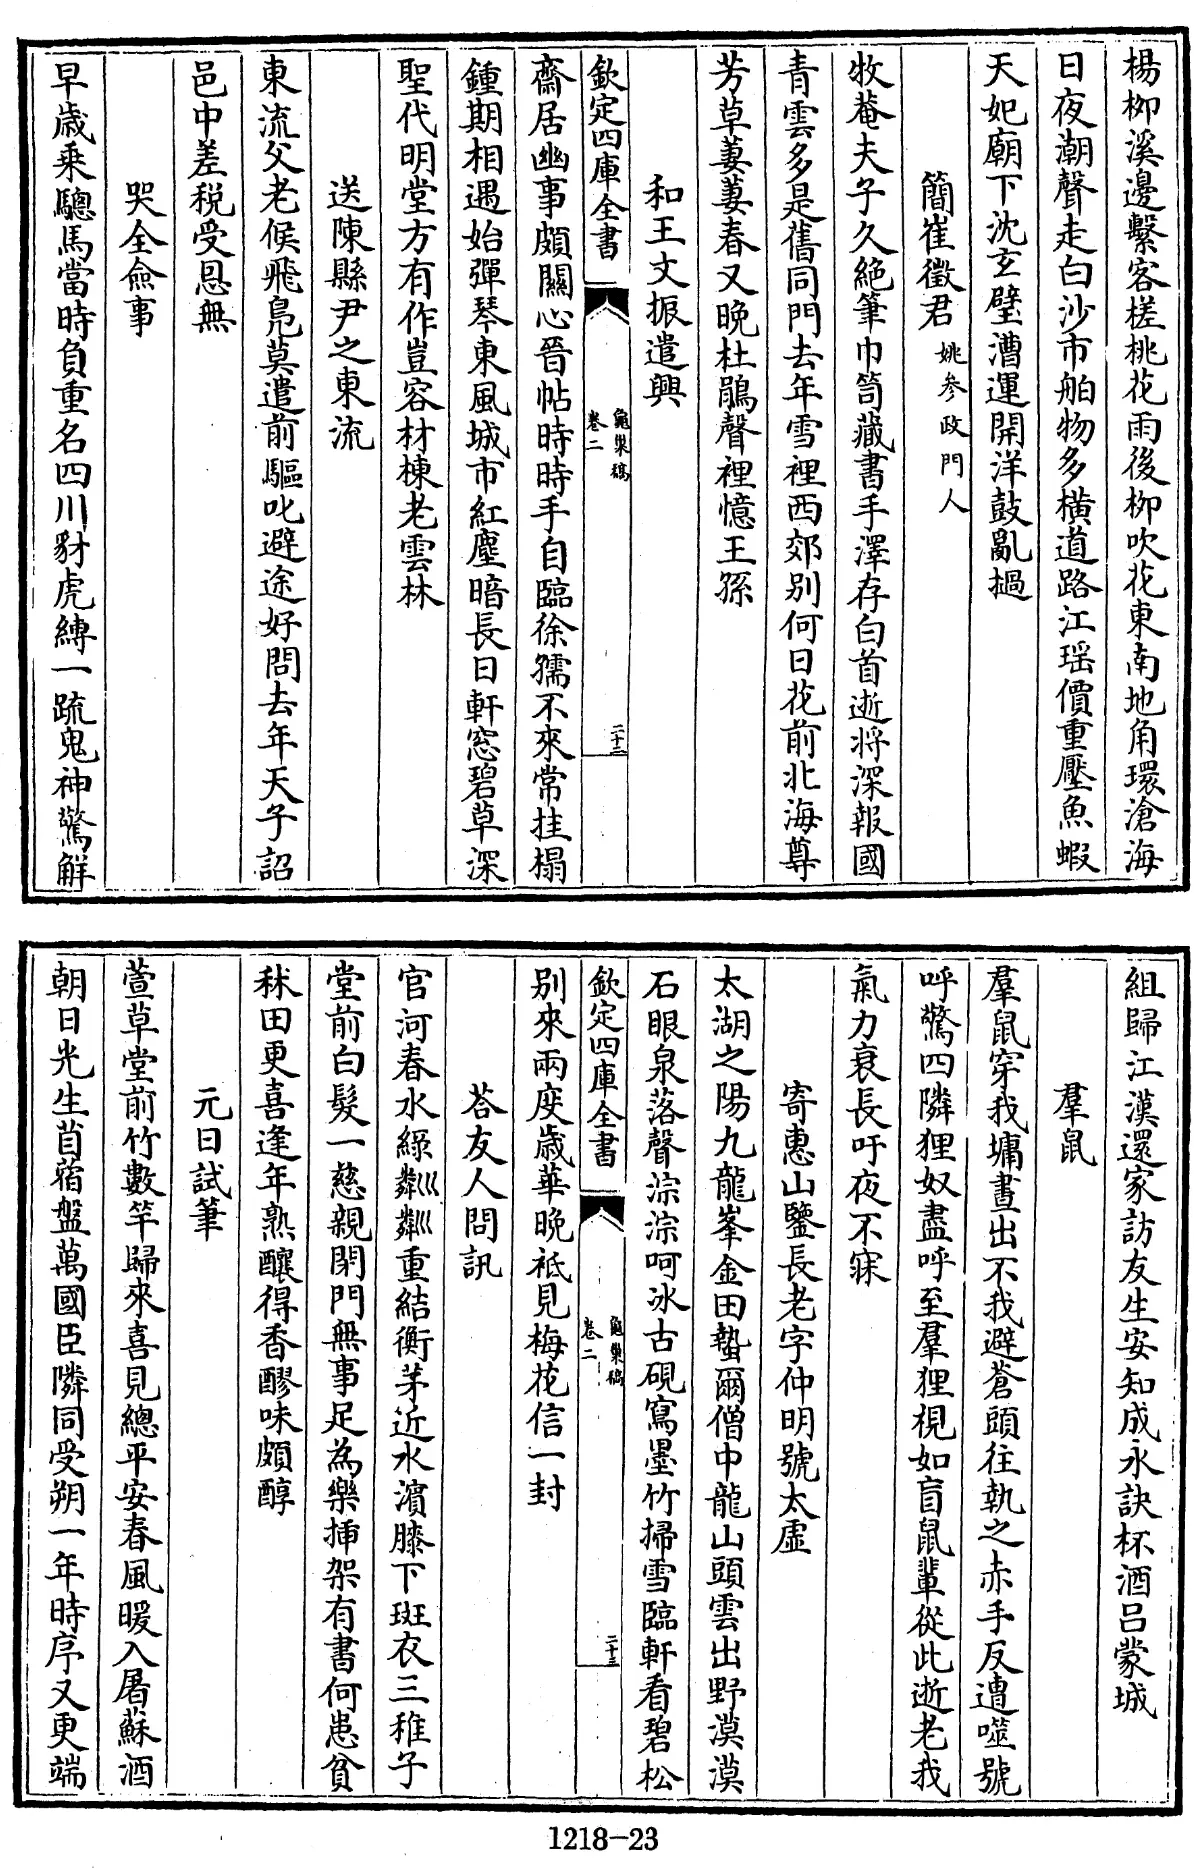 楊栁溪邊繫客槎桃花雨後栁吹花東南地角環滄海
日夜潮聲走白沙市舶物多横道路江瑶價重壓魚蝦
天妃廟下沈玄璧漕運開洋鼓亂撾
簡崔徵君姚參政門人
牧菴夫子久絶筆巾笥藏書手澤存白首逝將深報國
青雲多是舊同門去年雪裡西郊别何日花前北海尊
芳草萋萋春又晚杜鵑聲裡憶王孫
和王文振遣興
欽定四庫全書
龜巢稿
卷二
二十二
齋居幽事頗關心晉帖時時手自臨徐孺不來常挂榻
鍾期相遇始彈琴東風城市紅塵暗長日軒窓碧草深
聖代明堂方有作豈容材棟老雲林
送陳縣尹之東流
東流父老候飛鳬莫遣前驅叱避途好問去年天子詔
邑中差税受恩無
哭全僉事
早歳乘驄馬當時負重名四川豺虎縛一疏鬼神驚解
組歸江漢還家訪友生安知成永訣杯酒吕蒙城
羣鼠
羣鼠穿我墉晝出不我避蒼頭往執之赤手反遭噬號
呼驚四隣狸奴盡呼至羣狸視如盲鼠輩從此逝老我
氣力衰長吁夜不寐
寄惠山鑒長老字仲明號太虚
太湖之陽九龍峯金田蟄爾僧中龍山頭雲出野漠漠
石眼泉落聲淙淙呵冰古硯寫墨竹掃雪臨軒看碧松
欽定四庫全書
龜巢稿
卷二
二十三
别來兩度歳華晚祗見梅花信一封
荅友人問訊
官河春水緑粼粼重結衡茅近水濱膝下斑衣三稚子
堂前白髮一慈親閉門無事足為樂挿架有書何患貧
秫田更喜逢年熟釀得香醪味頗醇
元日試筆
萱草堂前竹數竿歸來喜見總平安春風暖入屠蘇酒
朝日光生苜蓿盤萬國臣隣同受朔一年時序又更端
1218-23